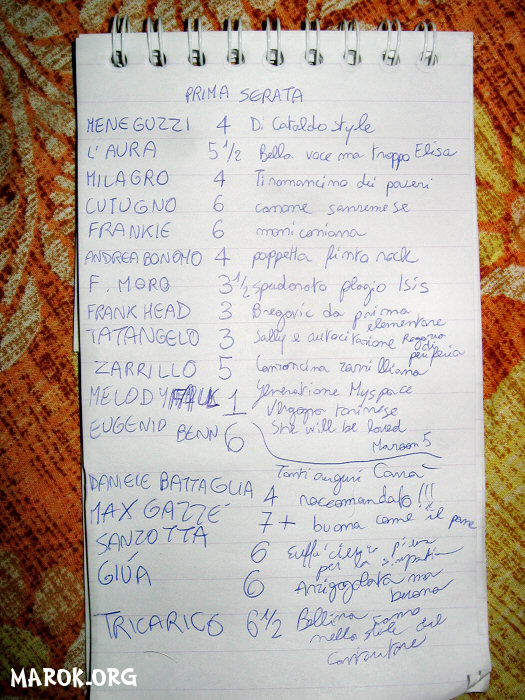 PRIMA SERATA
MENEGUZZI 4 Di Cataldo style
L'AURA 5 1/2 Bella voce ma troppo Elisa
MILAGRO 4 Tiromancino dei poveri
CUTUGNO 6 canzone sanremese
FRANKIE 6 moniconiana
ANDREA BONOMO 4 poppetta finto rock
F. MORO 3 1/2 spudorato plagio Isis
FRANK HEAD 3 Bregovic da prima elementare
TATANGELO 3 Sally e autocitazione Ragazza di periferia
ZARRILLO 5 Canzoncina zarrilliana
MELODY FALL 1 Generatione Myspace
Vergogna torinese
EUGENIO BENN 6 She will be loved
Maroon 5
Tanti auguri Carrà
DANIELE BATTAGLIA 4 raccomandato!!!
MAX GAZZÈ 7+ buona come il pane
SANZOTTA 6 per la simpatia
GIUA 6 Arzigogolata ma buona
TRICARICO 6 1/2 Bellina
nello stile del
cantautore
MAROK.ORG